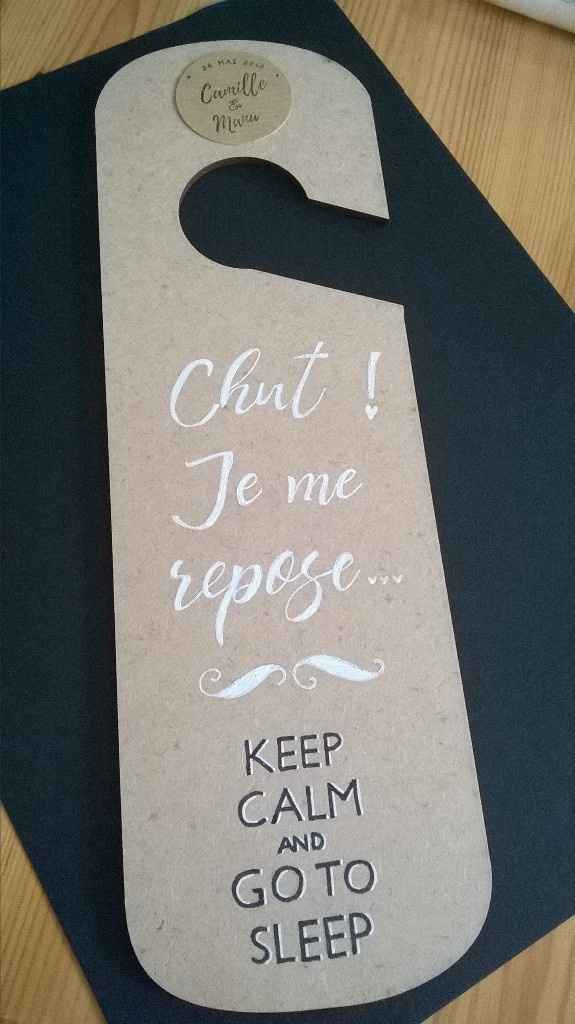 26 MAI 2018
Camille
&
Manu
Chut !
Je me
repose...
KEEP
CALM
AND
GO TO
SLEEP